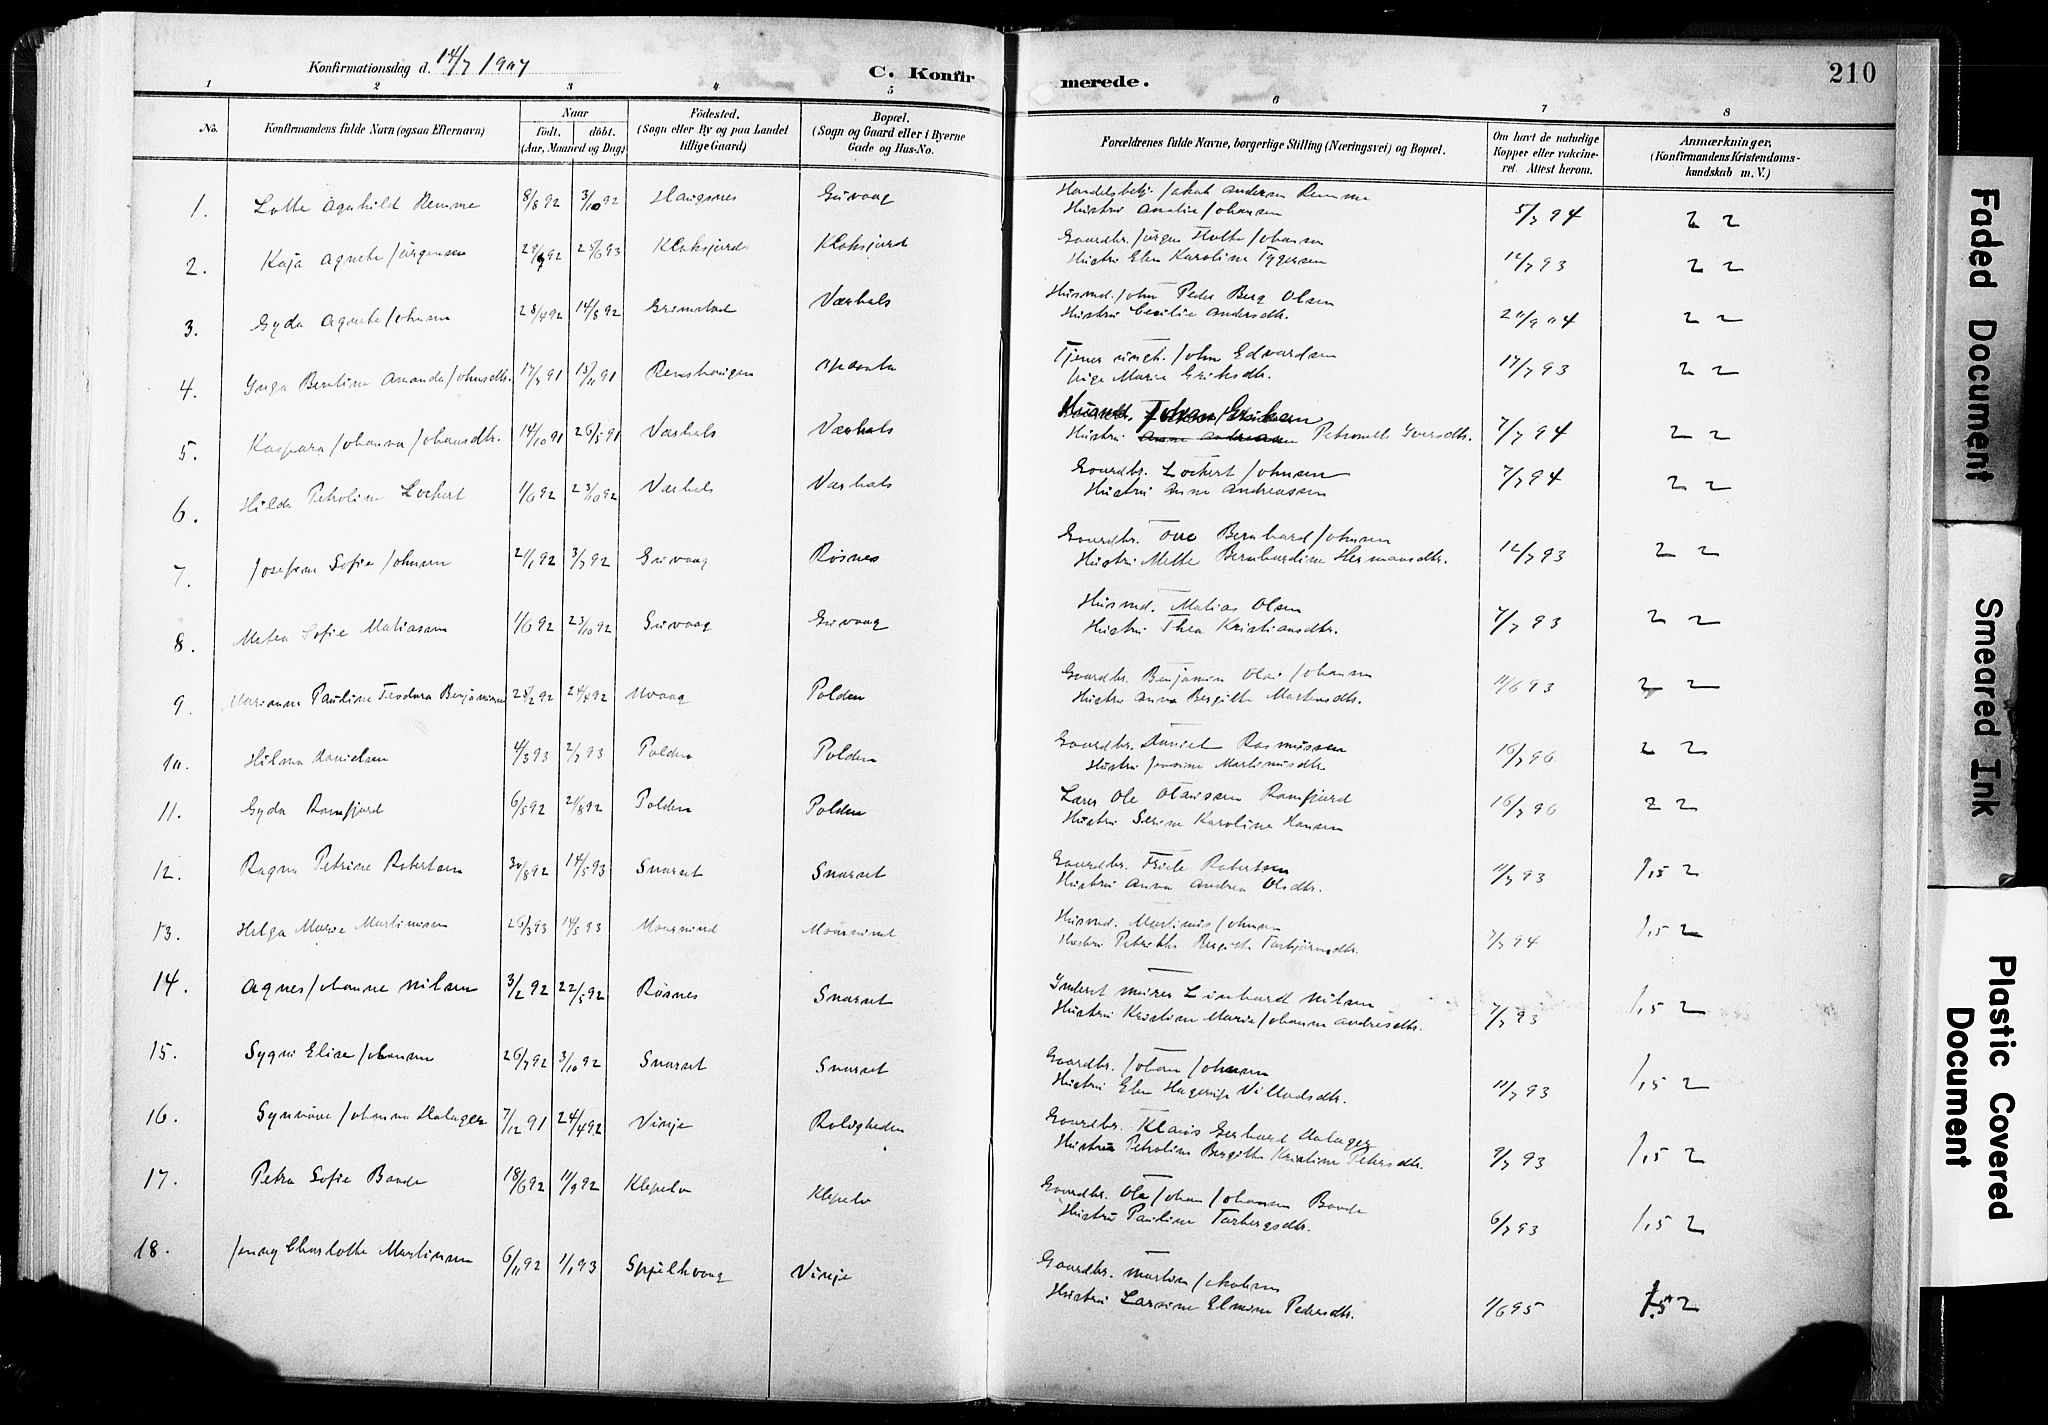 Konfirmationsdag d. 14/7 1907
C. Konfirmerede.
210
1 2 3 4 5 6 7 8
No.
Konfirmandens fulde Navn (ogsaa Efternavn)
Naar
født. døbt.
(Aar, Maaned og Dag)
Fødested.
(Sogn eller By og paa Landet tillige Gaard)
Bopæl.
(Sogn og Gaard eller i Byerne Gade og Hus-No.
Forældrenes fulde Navne, borgerlige Stilling (Næringsvei) og Bopæl.
Om havt de naturlige Kopper eller vakcineret. Attest herom.
Anmærkninger,
(Konfirmandens Kristendomskundskab m. V.)
1. Lotte Agnhild Remme 8/8 92 3/10 92 Haugsnes Guvaag
Handelsbetj. Jakob Andersen Remme
Hustru Analie Johansen 5/7 94 2 2
2. Kaja Agnete Jørgensen 93 Klaksjord Klaksjord
Gaardbr. Jørgen Holte Johansen
Hustru Elen Karoline Tygersen 12/7 93 2 2
3. Gyda Agnete Johnsen 28/4 92 14/8 92 Grimstad Værhals
Husmd. John Peder Berg Olsen
Hustru Cecilie Andersdtr. 2 2
4. Inga Bentine Amanda Johnsdtr. 17/7 91 15/11 91 Renshaugen
Tjener John Edvardsen
Pige Marie Eriksdtr. 17/7 93 2 2
5. Kaspara Johanna Johansdtr. 14/10 91 26/5 91 Værhals Værhals
Husmd. Johan Eriksen
Hustru Petronelle Iversdtr. 7/7 94 2 2
6. Hilda Petroline Lockert 1/6 92 23/10 92 Værhals Værhals
Gaardbr. Lockert Johnsen
Hustru Anne Andreassen 7/7 94 2 2
7. Josefine Sofie Johnsen 21/1 92 3/7 92 Guvaag Røsnes
Gaardbr. Tove Bernhard Johnsen
Hustru Mette Bernhardine Hermansdtr. 12/7 93 2 2
8. Metea Sofie Matiassen 1/6 92 23/10 92 Guvaag Guvaag
Husmd. Matias Olsen
Hustru Thea Kristiansdtr. 7/7 93 2 2
9. Marianne Pauline Teodora Benjaminsen 28/2 92 24/4 92 Uvaag Polden
Gaardbr. Benjamin Olai Johansen
Hustru Anna Bergitte Martensdtr. 11/6 93 2 2
10. Hilma Danielsen 4/3 93 2/7 93 Polden Polden
Gaardbr. Daniel Rasmussen
Hustru Jensine Martinusdtr. 16/7 96 2 2
11. Gyda Ramfjord 6/5 92 21/8 92 Polden Polden
Lars Ole Olaissen Ramfjord
Hustru Serine Karoline Hansen 16/7 96 2 2
12. Ragna Petrine Robertsen 30/8 92 14/5 93 Snarset Snarset
Gaardbr. Robertsen
Hustru Anna Andrea Olsdtr. 11/7 93 1,5 2
13. Helga Marie Martinussen 26/3 93 14/5 93 Maurnind
Husmd. Martinus Johnsen
Hustru Petrikke Bergitte Torbjørnsdtr. 7/7 94 1,5 2
14. Agnes Johanne Nilsen 3/2 92 22/5 92 Røsnes Snarset
Inderst Murer Linhard Nilsen
Hustru Kristine Marie Johanne Andreasdtr. 7/7 93 1,5 2
15. Sygni Elise Johansen 26/7 92 3/10 92 Snarset Snarset
Gaardbr. Johan Johnsen
Hustru Elen Villadsdtr. 11/7 93 1,5 2
16. Synnøve Johanna Halager 7/12 91 24/4 92 Vinje Roligheden
Gaardbr. Klaus Gerhard Halager
Hustru Petroline Bergitte Kristine Petersdtr. 9/7 93 1,5 2
17. Petra Sofie Baade 18/6 92 11/9 92 Klepelv Klepelv
Gaardbr. Ole Johan Johansen Baade
Hustru Pauline Torbergsdtr. 6/7 93 1,5 2
18. Jenny Charlotte Martinsen 6/11 92 1/1 93 Spjelkvaag Vinje
Gaardbr. Martin Jakobsen
Hustru Larsine Elmine Pedersdtr. 1/6 95 1,5 2
Faded Document
Smeared Ink
Plastic Covered Document